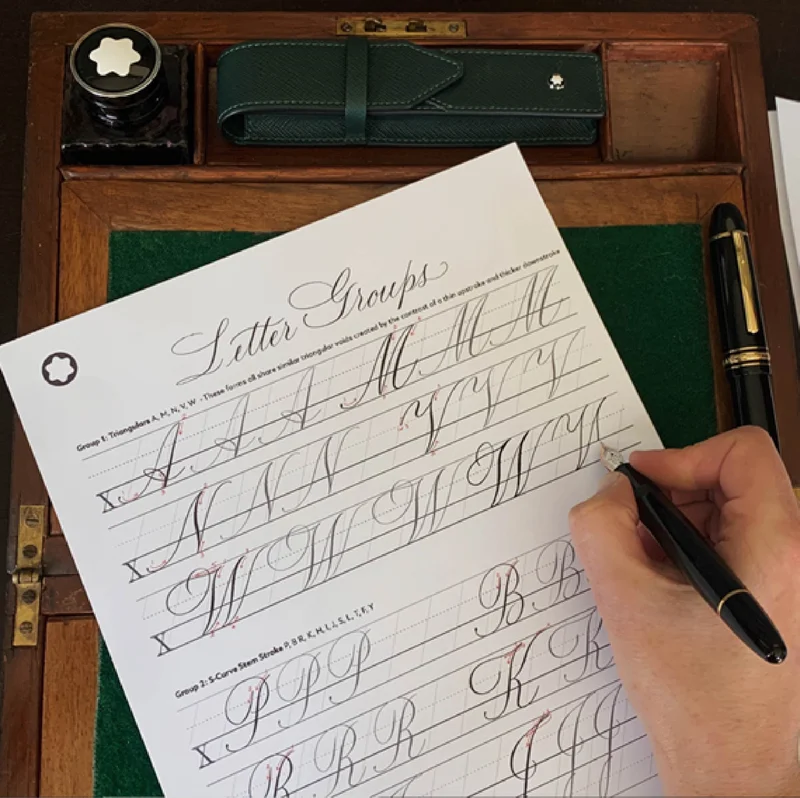 Letter Groups
Group 1: Triangulars A, M, N, V, W - These forms all share similar triangular voids created by the contrast of a thin upstroke and thicker downstroke
X A A A M M M
X N N N V V V
X W W W W W
Group 2: S-Curve Stem Stroke P, B R, K, H, I, J, S, L, T, F, Y
X P P P B B
R R R K K
J J J